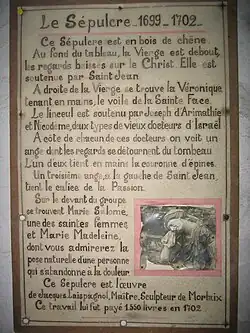 Le Sépulcre _ 1699 _ 1702 _
Ce Sépulcre est en bois de chêne
Au fond du tableau, la Vierge est debout,
les regards baissés sur le Christ. Elle est
soutenue par Saint Jean.
A droite de la Vierge se trouve la Véronique
tenant en mains, le voile de la Sainte Face.
Le linceul est soutenu par Joseph d'Arimathie
et Nicodème, deux types de vieux docteurs d'Israël
A côté de chacun de ces docteurs on voit un
ange dont les regards se détournent du tombeau
L'un d'eux tient en mains la couronne d'épines.
Un troisième ange, à la gauche de Saint Jean,
tient le calice de la Passion.
Sur le devant du groupe
se trouvent Marie Salomé,
une des saintes femmes
et Marie Madeleine,
dont vous admirerez la
pose naturelle d'une personne
qui s'abandonne à la douleur.
Ce Sépulcre est l'œuvre
de Jacques Laispagnol, Maître Sculpteur de Morlaix
Ce travail lui fut payé 1550 livres en 1702